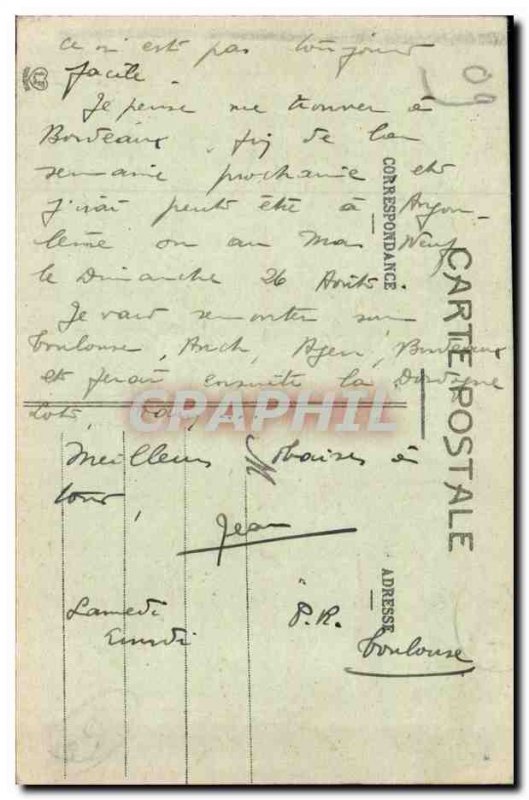 ce n'est pas toujours
facile.
Je pense me trouver à
Bordeaux, fin de la
semaine prochaine et
j'irai peut être à Angou
lême ou au Mas Neuf
le Dimanche 26 Août.
Je vais remonter sur
Toulouse, Auch, Agen, Bordeaux
et ferai ensuite la Dordogne
Lot,
Meilleurs baisers à
tous,
Jean
Samedi
P.R.
Toulouse
CORRESPONDANCE
CARTE POSTALE
ADRESSE
CPAPHIL